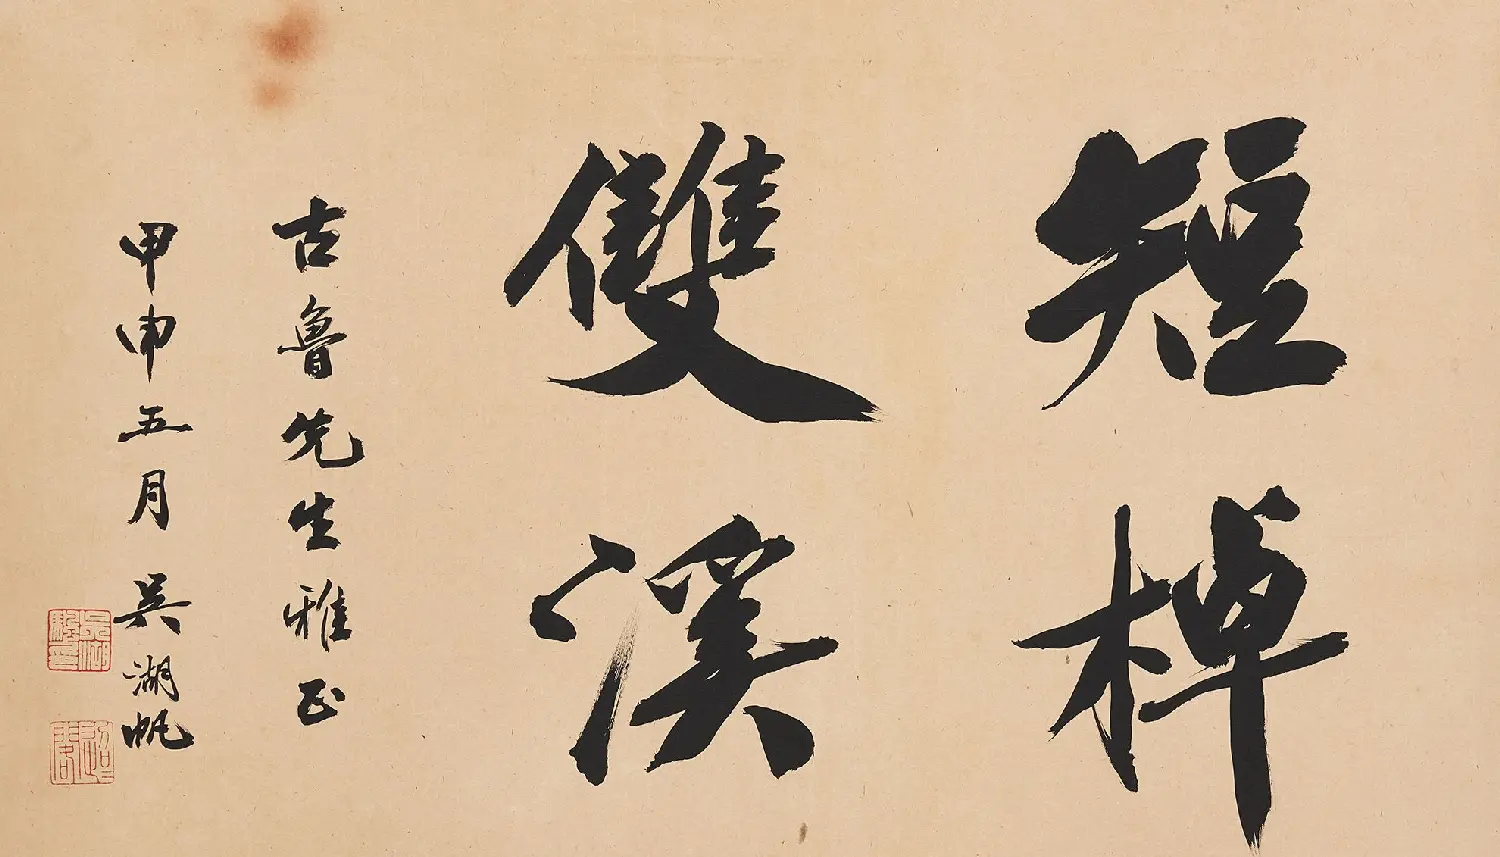 短棹
雙溪
古魯先生雅正
甲申五月吳湖帆